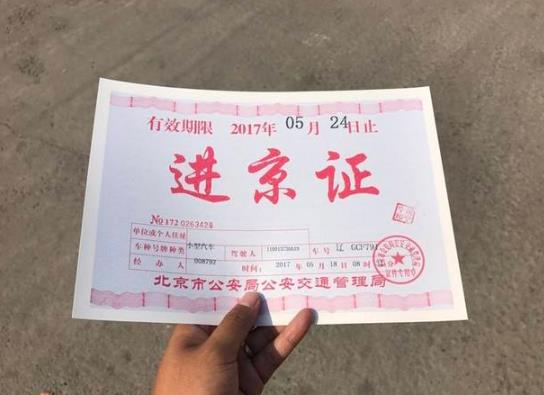 有效期限 2017年 05月 24日止
进京证
№172 0263428
单位或个人住址
车种号牌种类 小型汽车 驾驶人 车号 辽
经办人 008792 时间: 2017年 05月 18日 08时
北京市公安局公安交通管理局